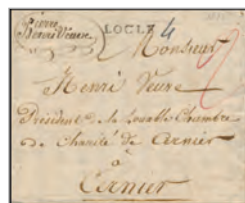 Pierre
Henri Veuve
LOCLE 4
Monsieur
Henri Veuve
Président de la Louable Chambre
de Charité de Cernier
à
Cernier